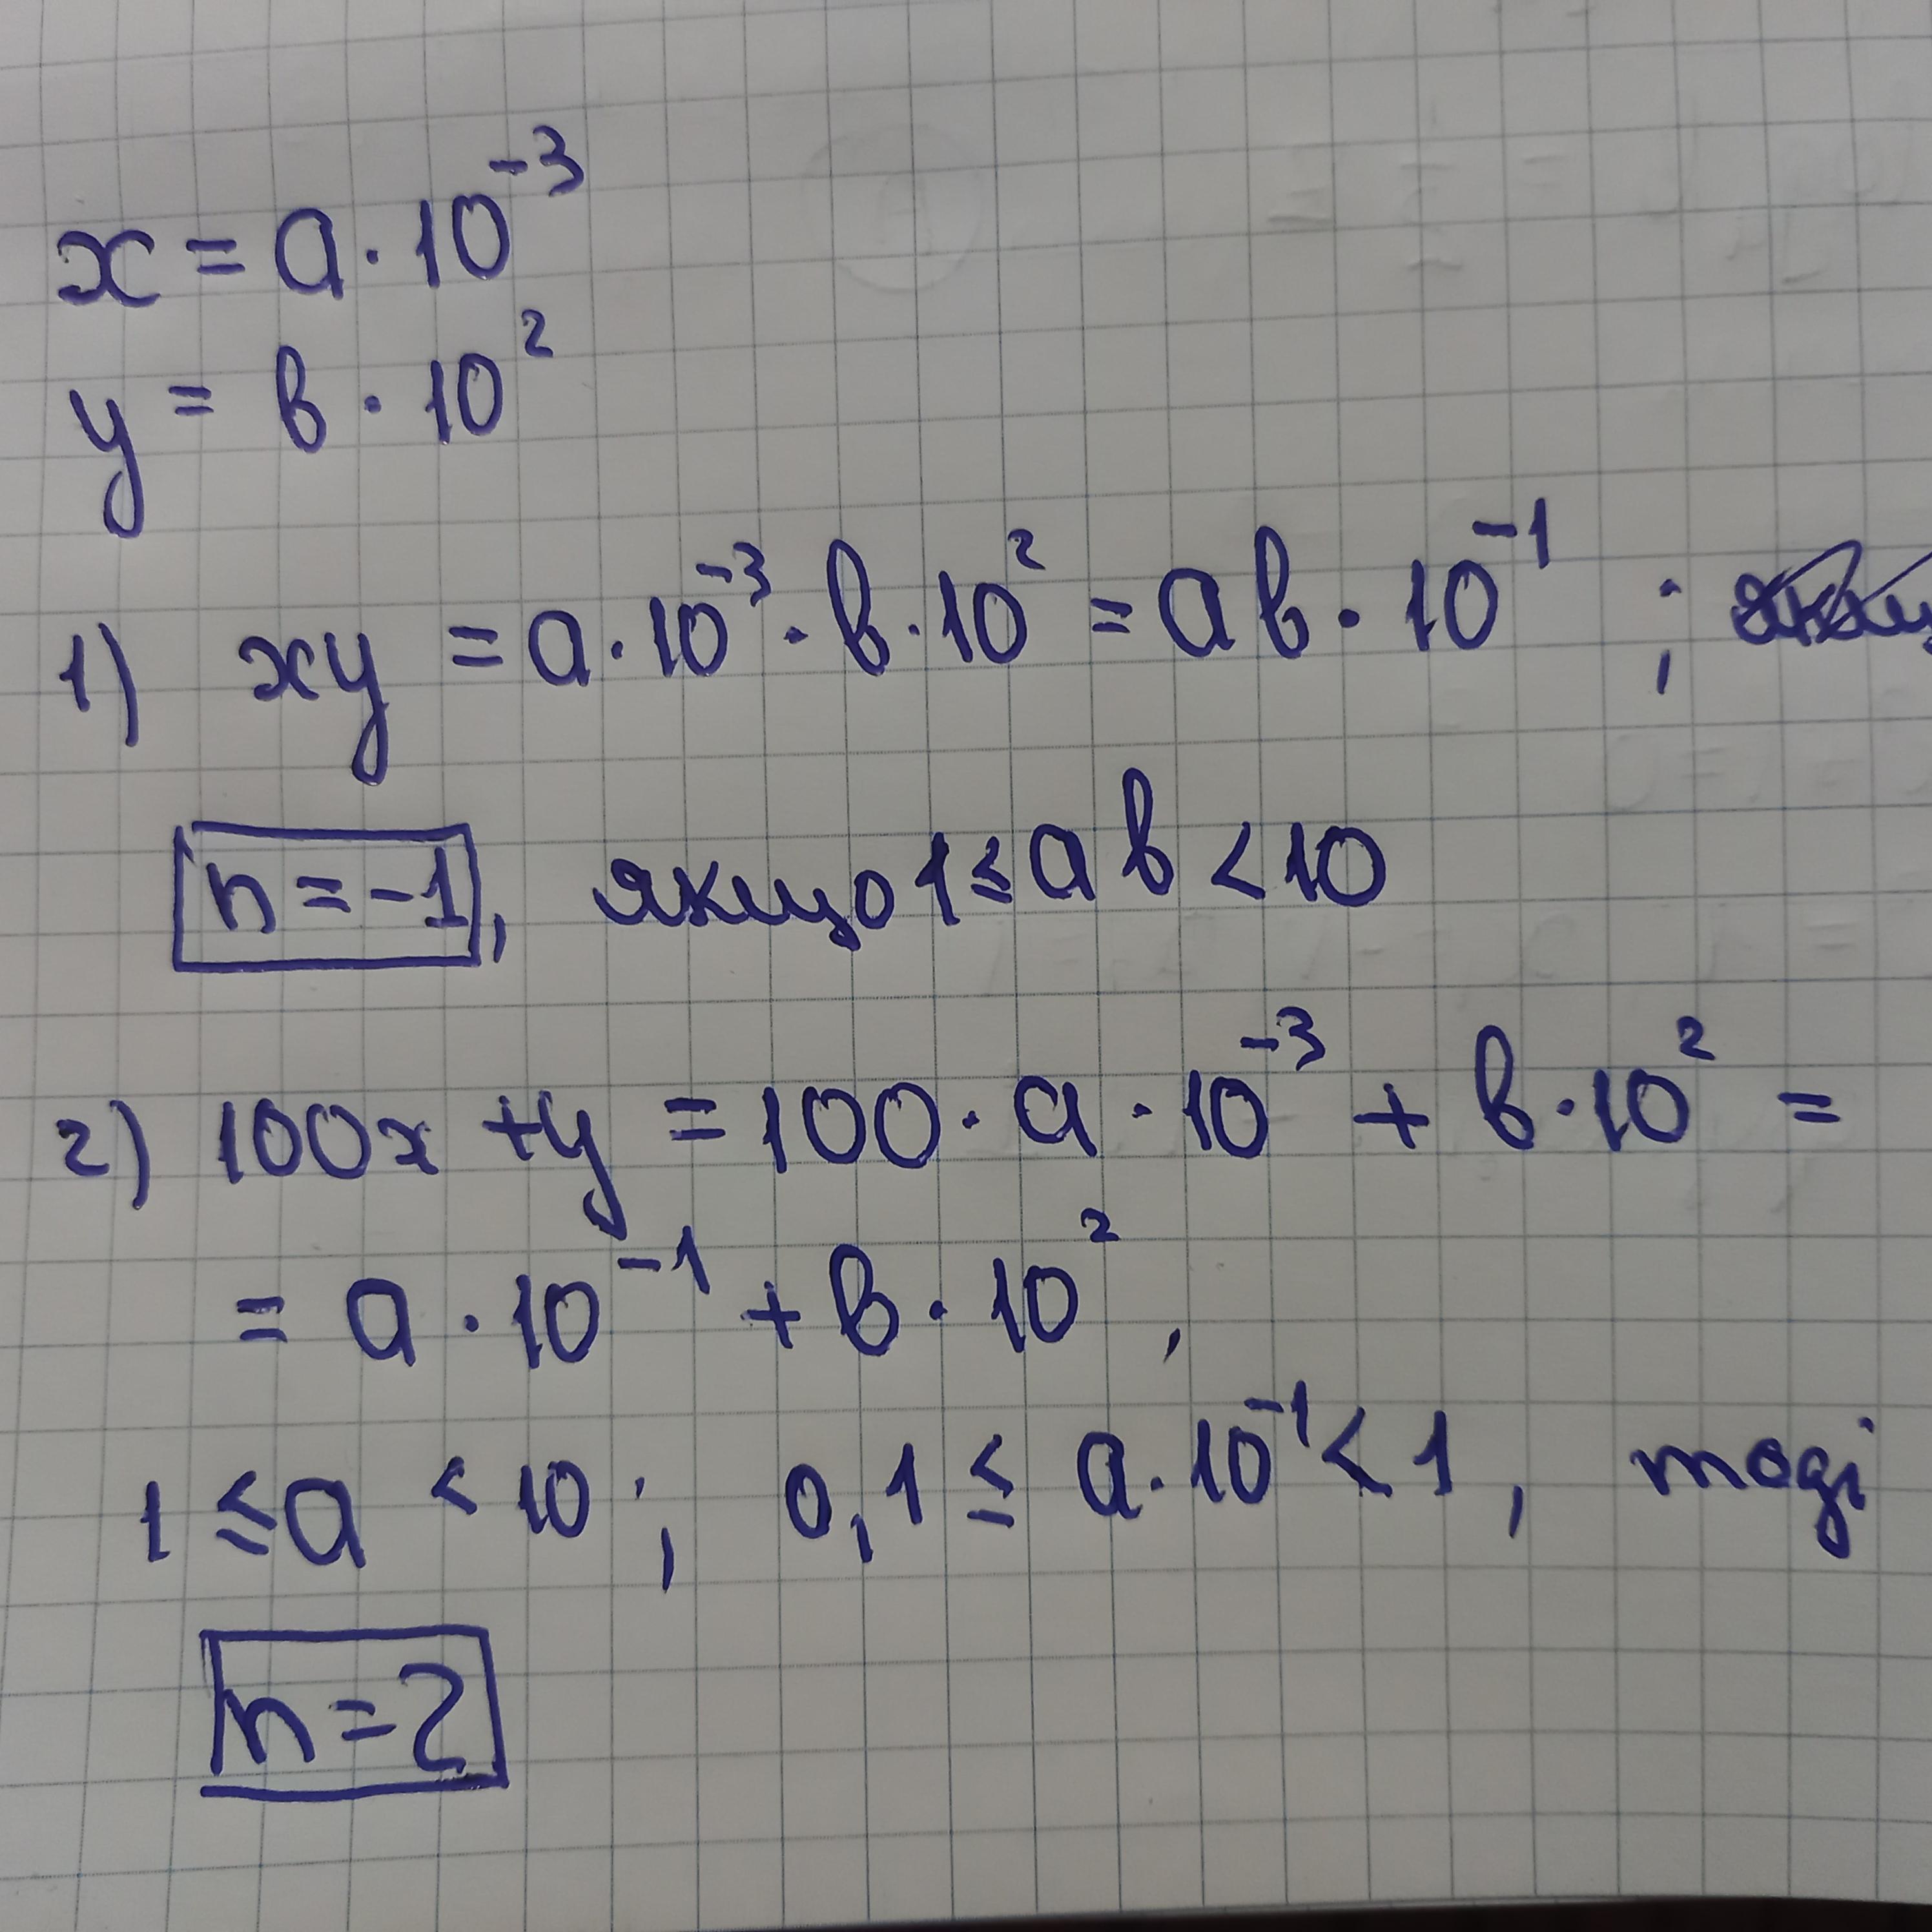 x = a · 10⁻³
y = b · 10²
1) xy = a · 10⁻³ · b · 10² = ab · 10⁻¹ ;
n = -1, якщо 1 ≤ ab < 10
2) 100x + y = 100 · a · 10⁻³ + b · 10² =
= a · 10⁻¹ + b · 10² ,
1 ≤ a < 10 ; 0,1 ≤ a · 10⁻¹ < 1 , тоді
n = 2